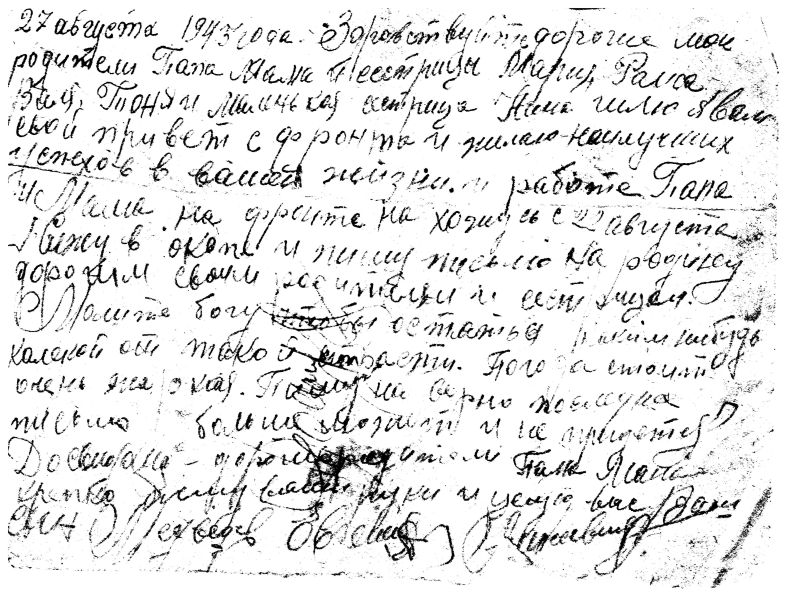 27 августа 1943 года. Здравствуйте дорогие мои
родители Папа Мама и сестрицы Мария, Раиса
Валя, Тоня и маленькая сестрица Нина шлю я вам
свой привет с фронта и желаю наилучших
успехов в вашей жизни и работе Папа
и Мама на фронте на хожусь с 22 августа
Лежу в окопе и пишу письмо на родину
дорогим своим родителям и сестрицам.
Молите богу чтобы остаться каким нибудь
калекой от такой страсти. Погода стоит
очень жаркая. Пишу на верно последне
письмо больше может и не придется
Досвидание дорогие родители Папа Мама
крепко жму ваши руки и целую вас Ваш
сын Медведев Евгений